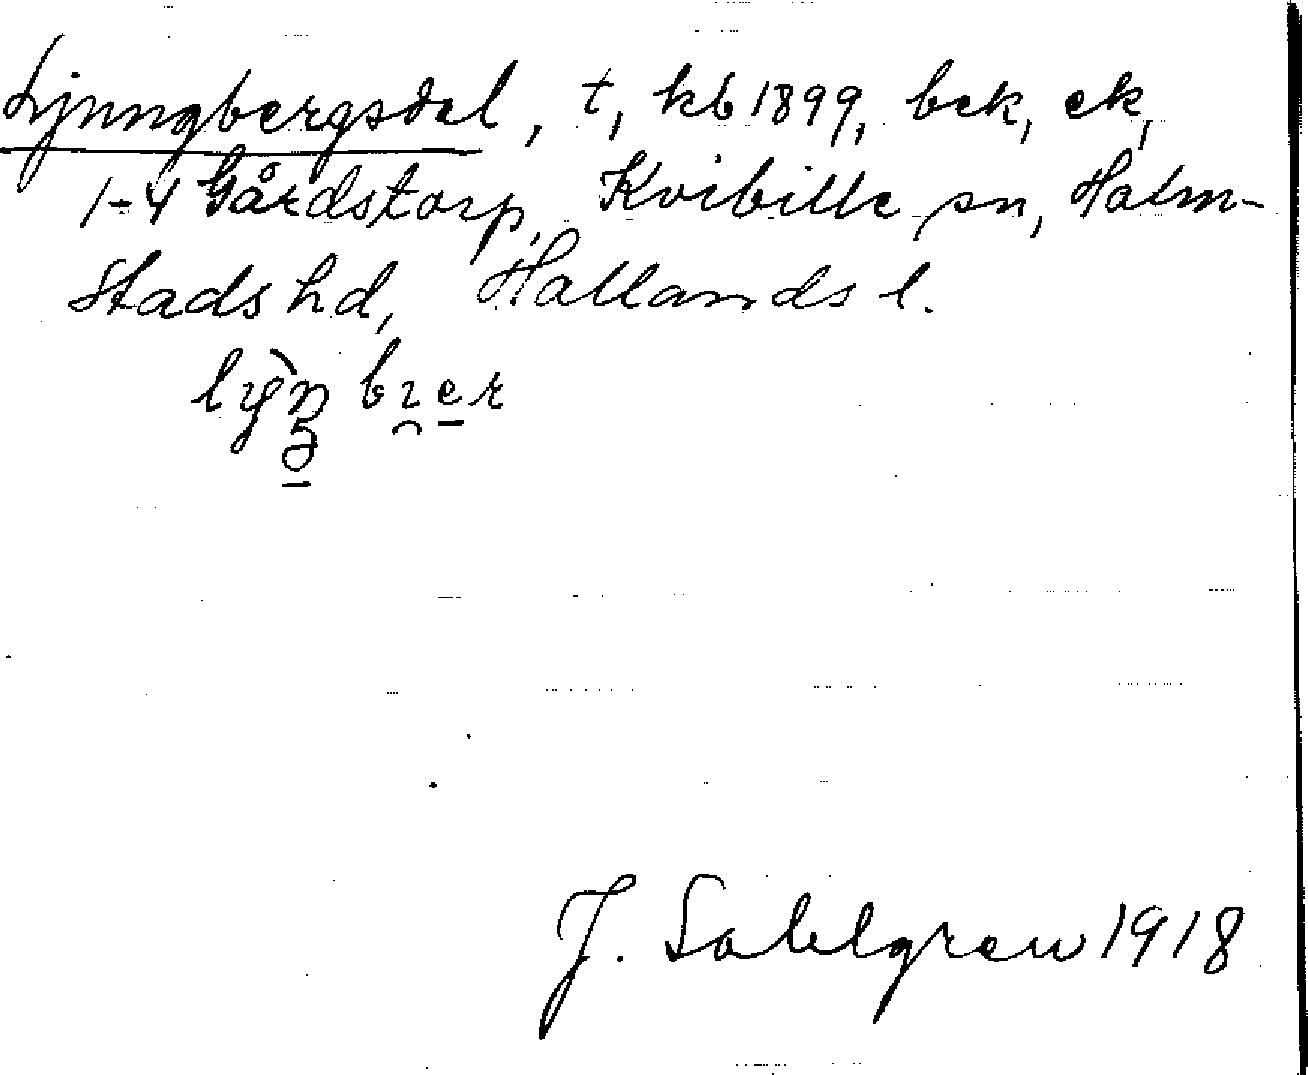 Ljungbergsdal, t, kb 1899, bek, ek,
1-4 Gårdstorp, Kvibille sn, Halm-
stads hd, Hallands l.
J. Sahlgren 1918